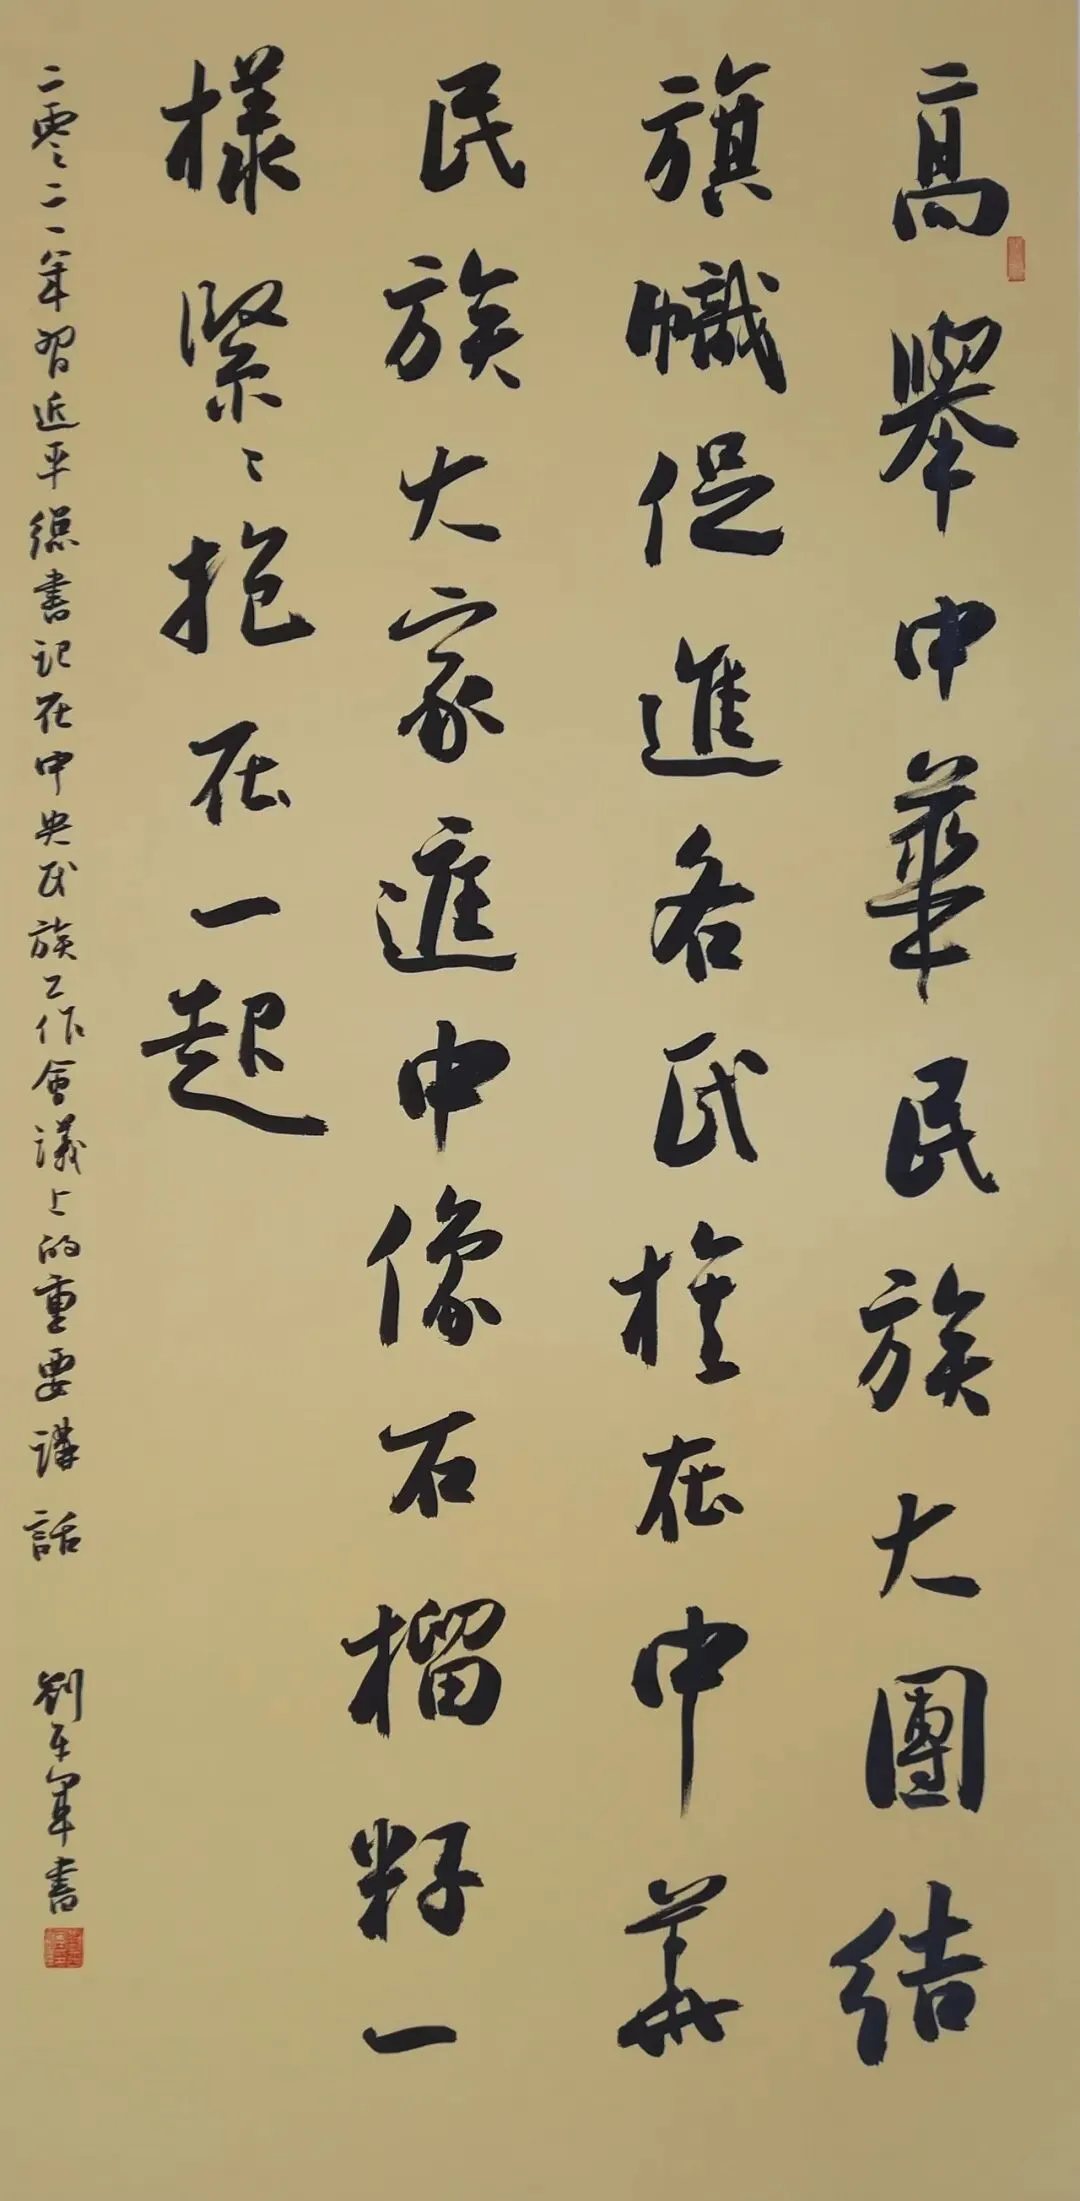 高舉中華民族大團結
旗幟促進各民族在中華
民族大家庭中像石榴籽一
樣緊〻抱在一起
二零二一年習近平總書記在中央民族工作會議上的重要講話 劉軍書